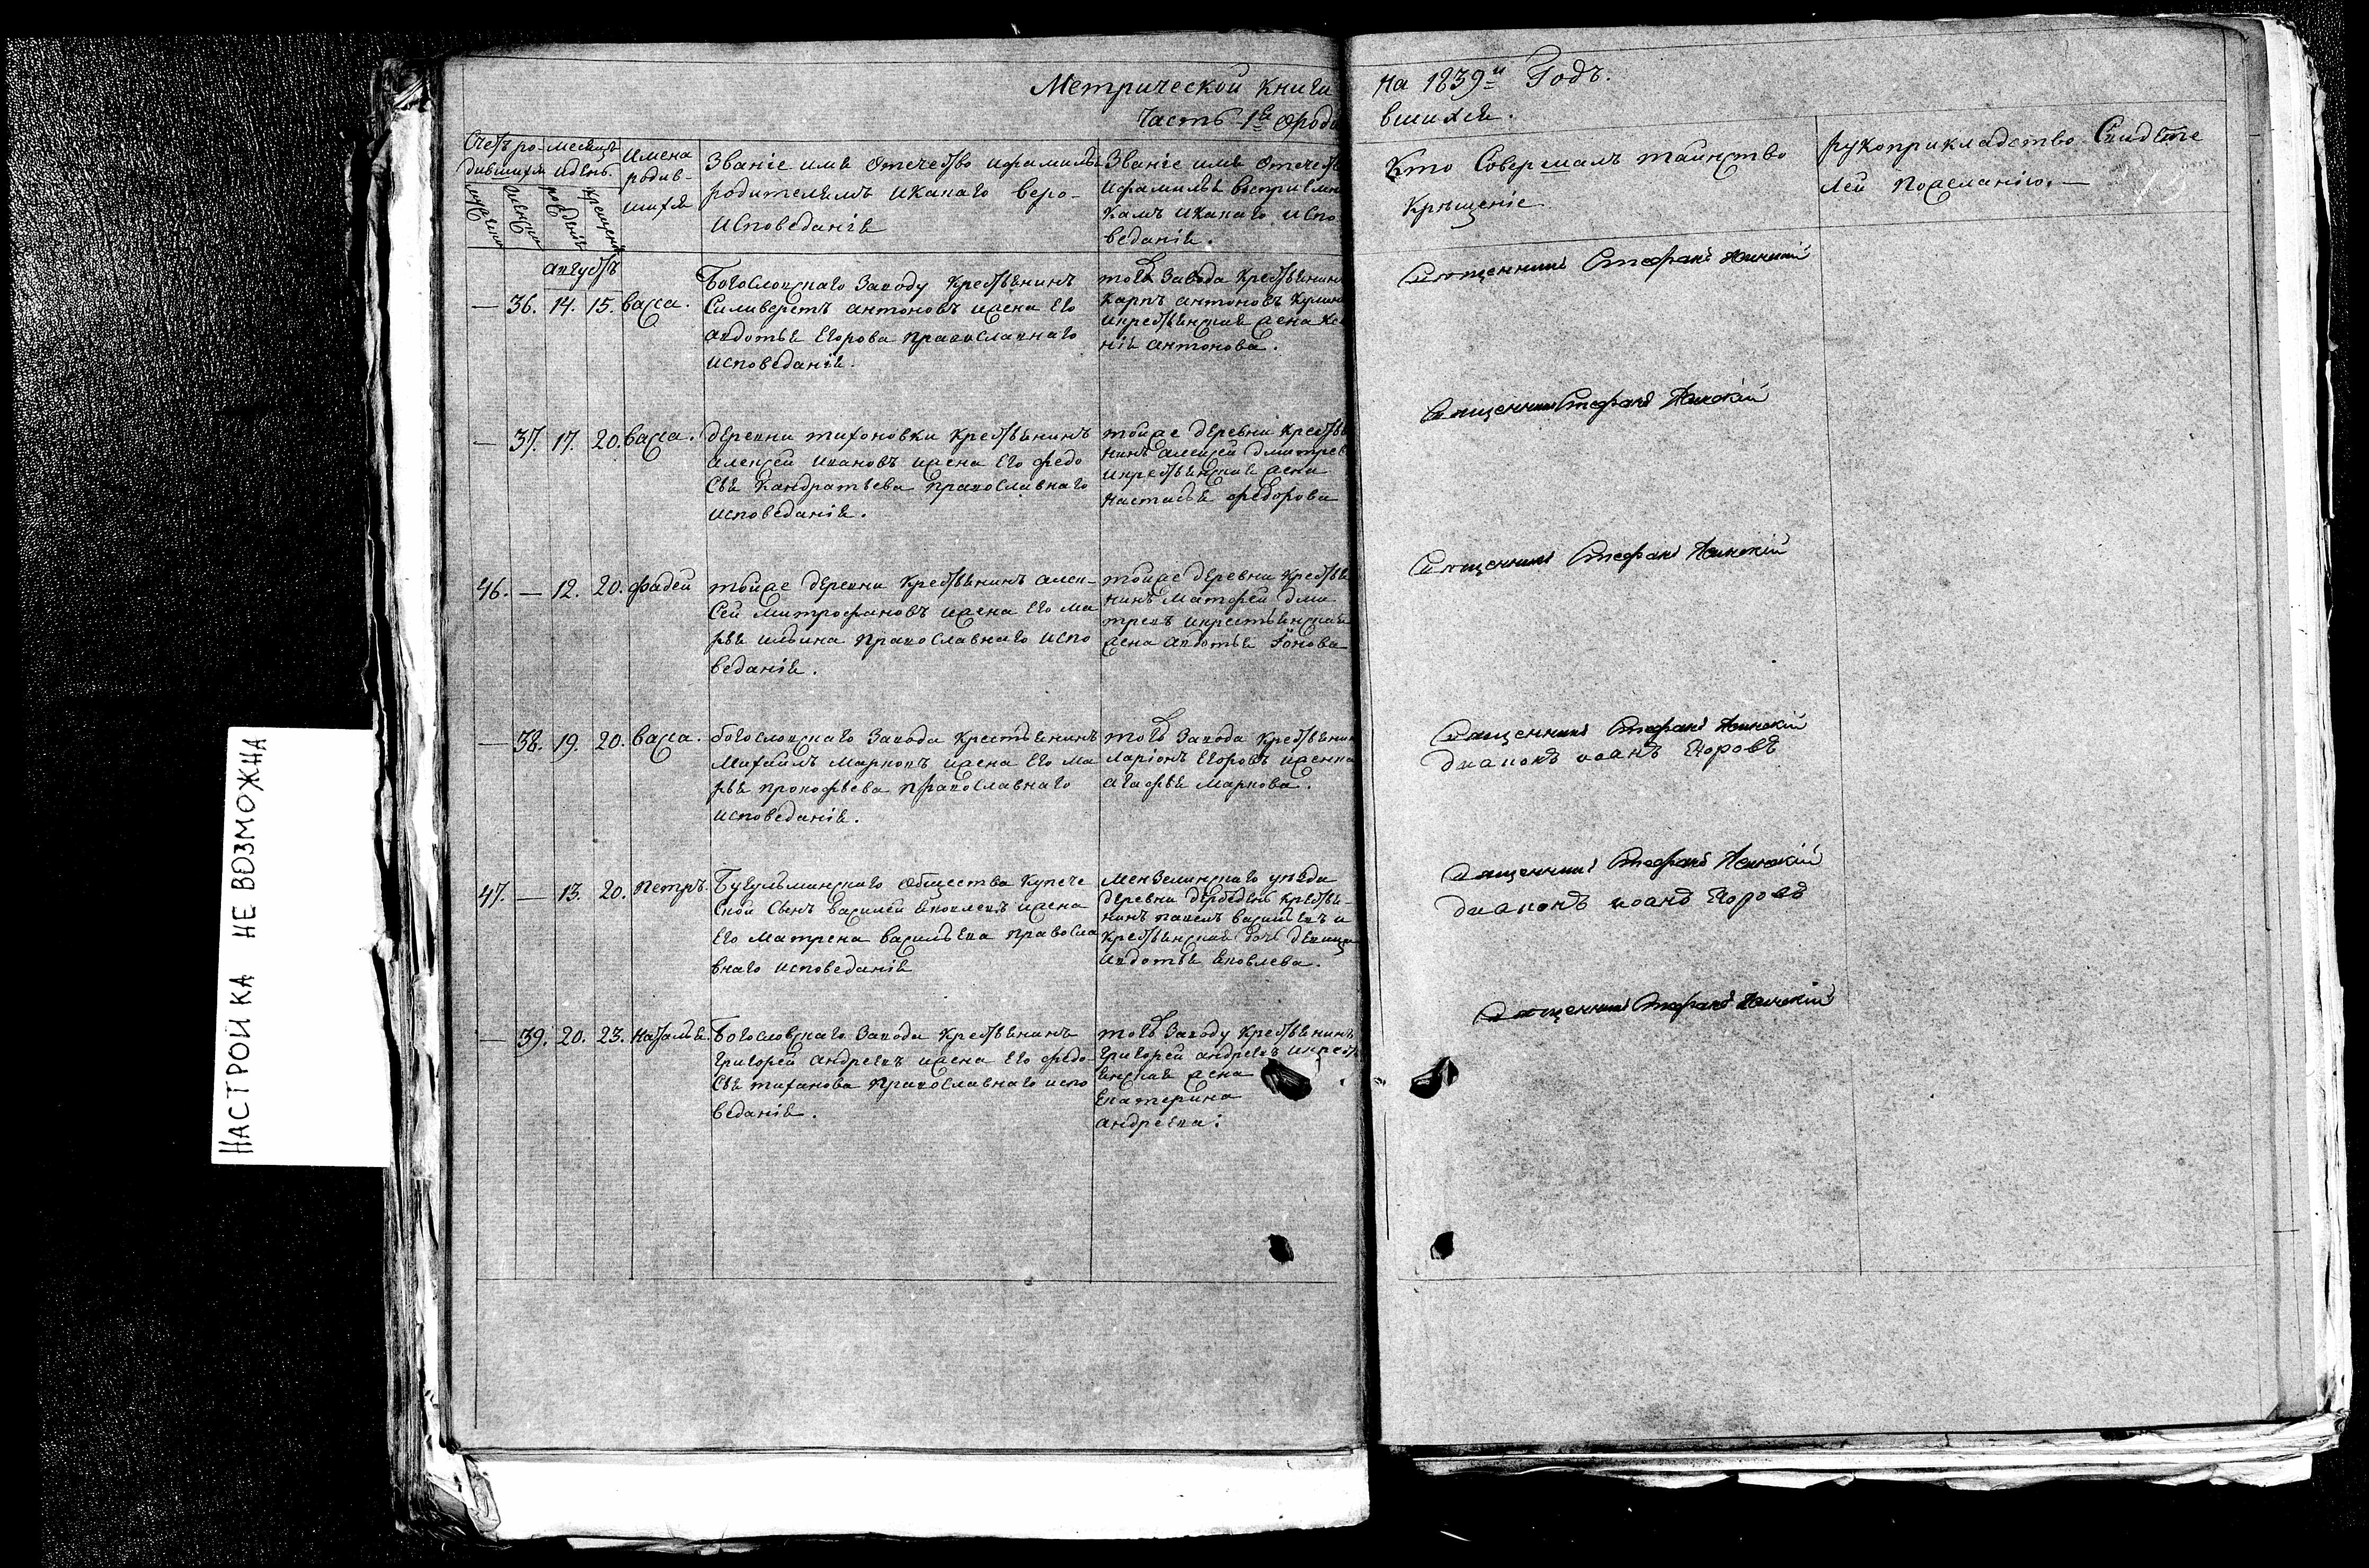 Метрической книги на 1839й Годъ.
Часть 1я ороди вшихся.
Счетъ ро-
дившихся
месецъ
идень.
имена
родив-
шихся
Званіе имя Отечество ифамилія
родителямъ икакаго веро-
исповеданія
Званіе имя Отечест
ифамилія восприемни
камъ икакаго испо
веданія.
Кто Совершалъ таинство
Крѣщеніе
рукоприкладство Свидѣте
лей пожеланію.—
августъ
— 36. 14. 15. васса.
Богословскаго Заводу Крестьянинъ
Силиверстъ антоновъ ижена Его
авдотья Егорова православнаго
исповеданія.
тогожъ Завода Крестьянинъ
Карпъ антоновъ
икрестьянская жена
нія антонова.
Священникъ Стефанъ
— 37. 17. 20. васса.
деревни тихоновки крестьянинъ
алексей ивановъ ижена Его федо
сья Кандратьева православнаго
исповеданія.
тойже деревни крестья
нинъ алексей дмитрев
икрестьянская жена
настасья федорова
Священникъ Стефанъ
46. — 12. 20. фадей
тойже деревни крестьянинъ алек-
сей митрофановъ ижена Его ма
рья ильина православнаго испо
веданія.
тойже деревни крестья
нинъ матфей дми
тревъ икрестьянская
жена авдотья
Священникъ Стефанъ
— 38. 19. 20. васса.
богословскаго Завода крестьянинъ
михайлъ марковъ ижена Его ма
рья прокофьева православнаго
исповеданія.
тогожъ Завода крестьянин
ларіонъ Егоровъ иженка
агафья маркова.
Священникъ Стефанъ
диаконъ иоанъ Егоровъ
47. — 13. 20. петръ.
Бугульминскаго общества купече
ской сынъ василей яковлевъ ижена
Его матрена васильева правосла
внаго исповеданія
мензелинскаго уѣзда
деревни дербедень крестья-
нинъ павелъ васильевъ и
крестьянская дочь девица
авдотья яковлева.
Священникъ Стефанъ
диаконъ иоанъ Егоровъ
— 39. 20. 23. наталья.
Богословскаго Завода крестьянинъ
григорей андреевъ ижена Его федо-
сья тиханова православнаго испо
веданія.
тогожъ Заводу крестьянинъ
григорей андреевъ икресть
янская жена
Екатерина
андреева.
Священникъ Стефанъ
НАСТРОЙКА НЕ ВОЗМОЖНА